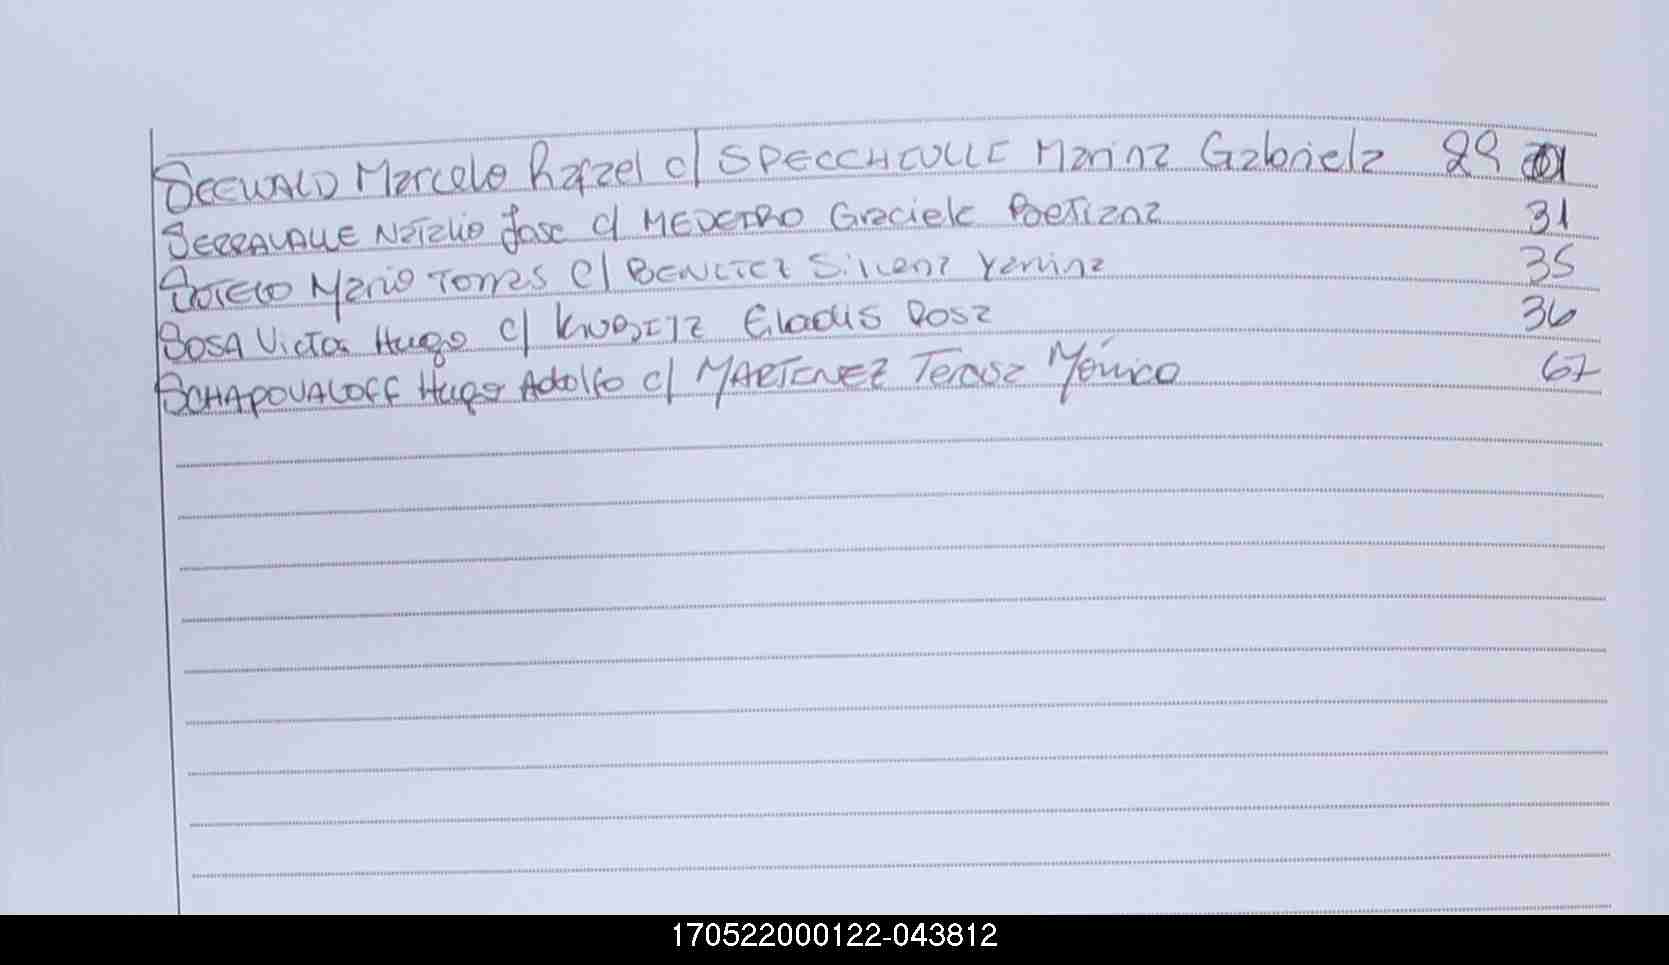 SEEWALD Marcelo Rafael c/ SPECCHIULLI Marina Gabriela 29
SERRAVALLE Natalio Jose c/ MEDEIRO Graciela 31
SOTELO Mario Torres c/ BENITEZ Silvana Yanina 35
SOSA Victor Hugo c/ Gladis Rosa 36
SCHAPOVALOFF Hugo Adolfo c/ MARTINEZ Teresa Mónica 67
170522000122-043812